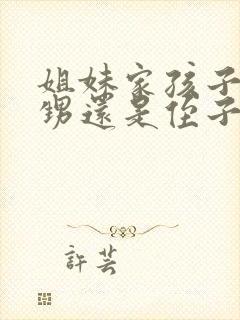 姐妹家孩子
甥還是侄子
許芸